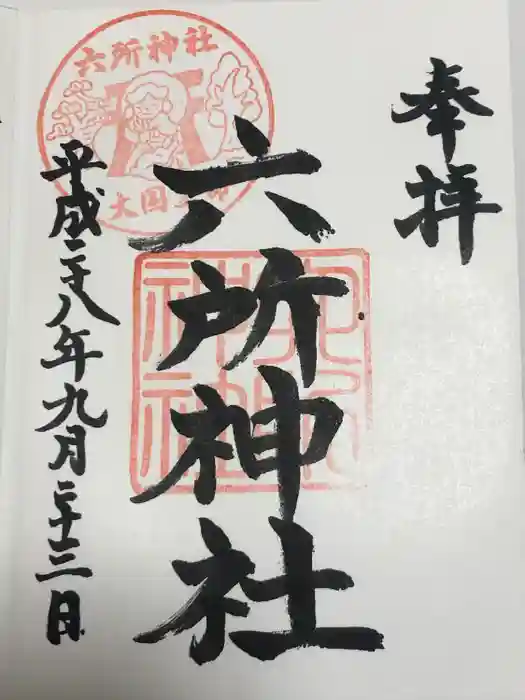 奉拝
六所神社
平成二十八年九月二十二日
六所神社